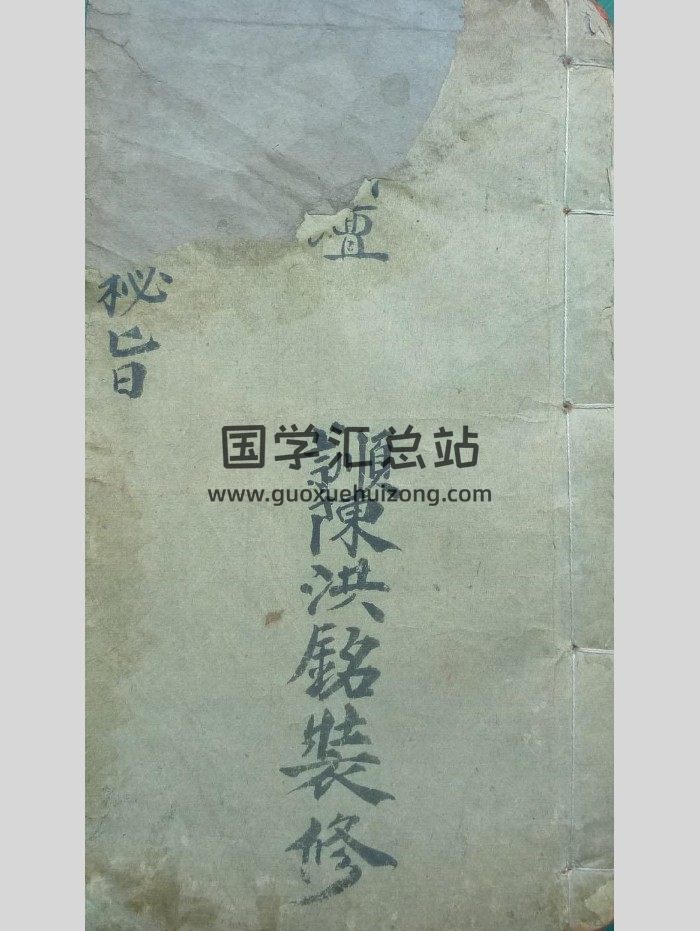 壇
陳洪銘裝修
秘旨
国学汇总站
www.guoxuehuizong.com